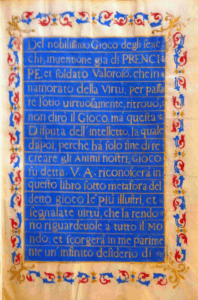 Del nobilissimo Gioco degli scac
chi, inventione già di PRENCI
PE, et soldato Valoroso, che in
namorato della Virtù, per passa
re l'otio virtuosamente, ritrovò,
non diro il Gioco, ma questa
Disputa dell'intelletto, la quale
dapoi, perche hà solo fine di re
creare gli Animi nostri, Gioco
fu detta. V. A. riconoscerà in
questo libro sotto metafora del
detto gioco le più illustri, et
segnalate virtù, che la rendo
no riguardevole à tutto il Mo
ndo: et scorgerà in me parime
nte un infinito desiderio di